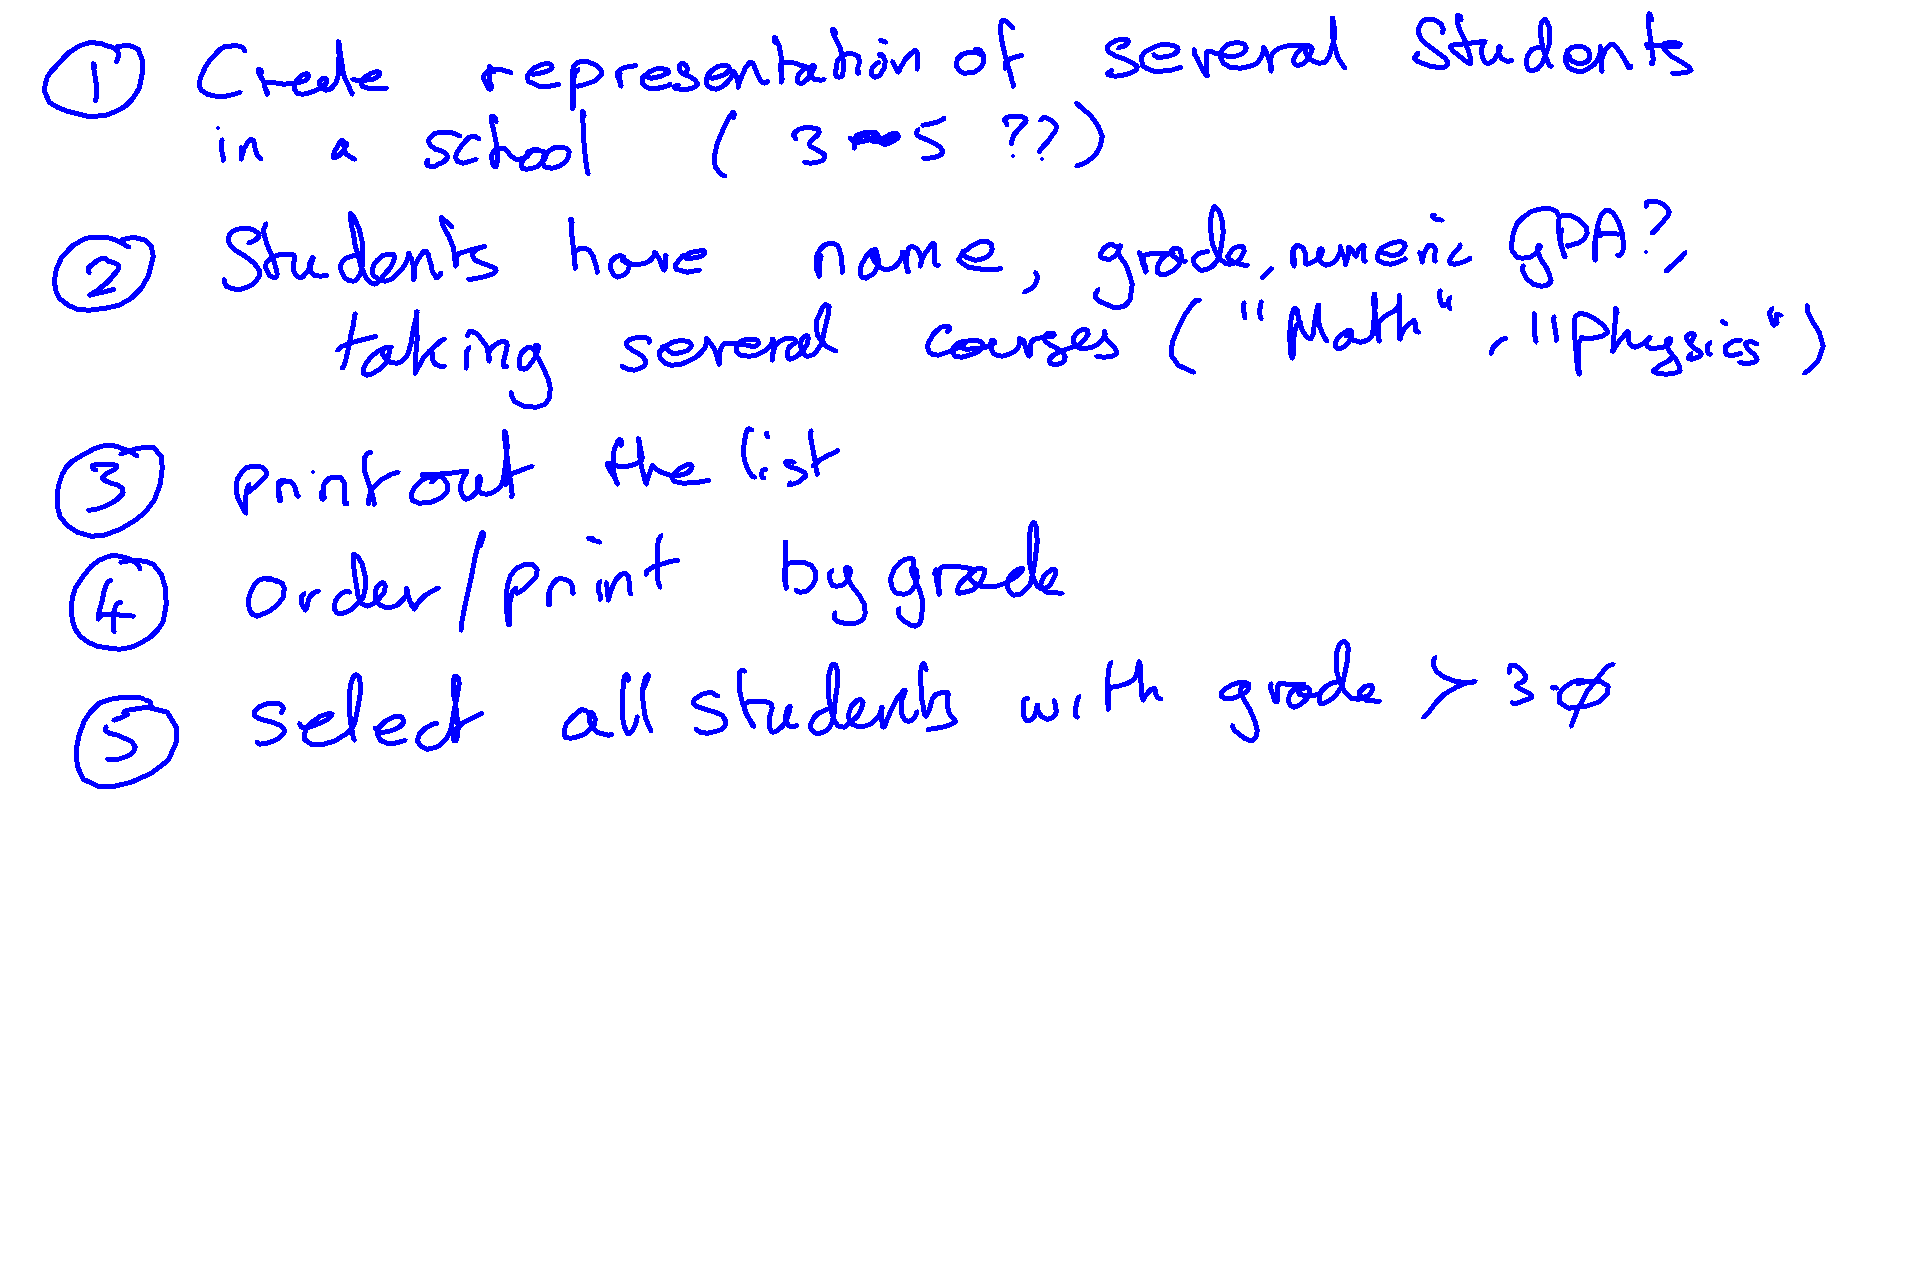 ① Create representation of several Students
in a school ( 3-5 ??)
② Students have name, grade, numeric GPA?,
taking several courses ("Math", "Physics")
③ print out the list
④ order/print by grade
⑤ select all students with grade > 3.0